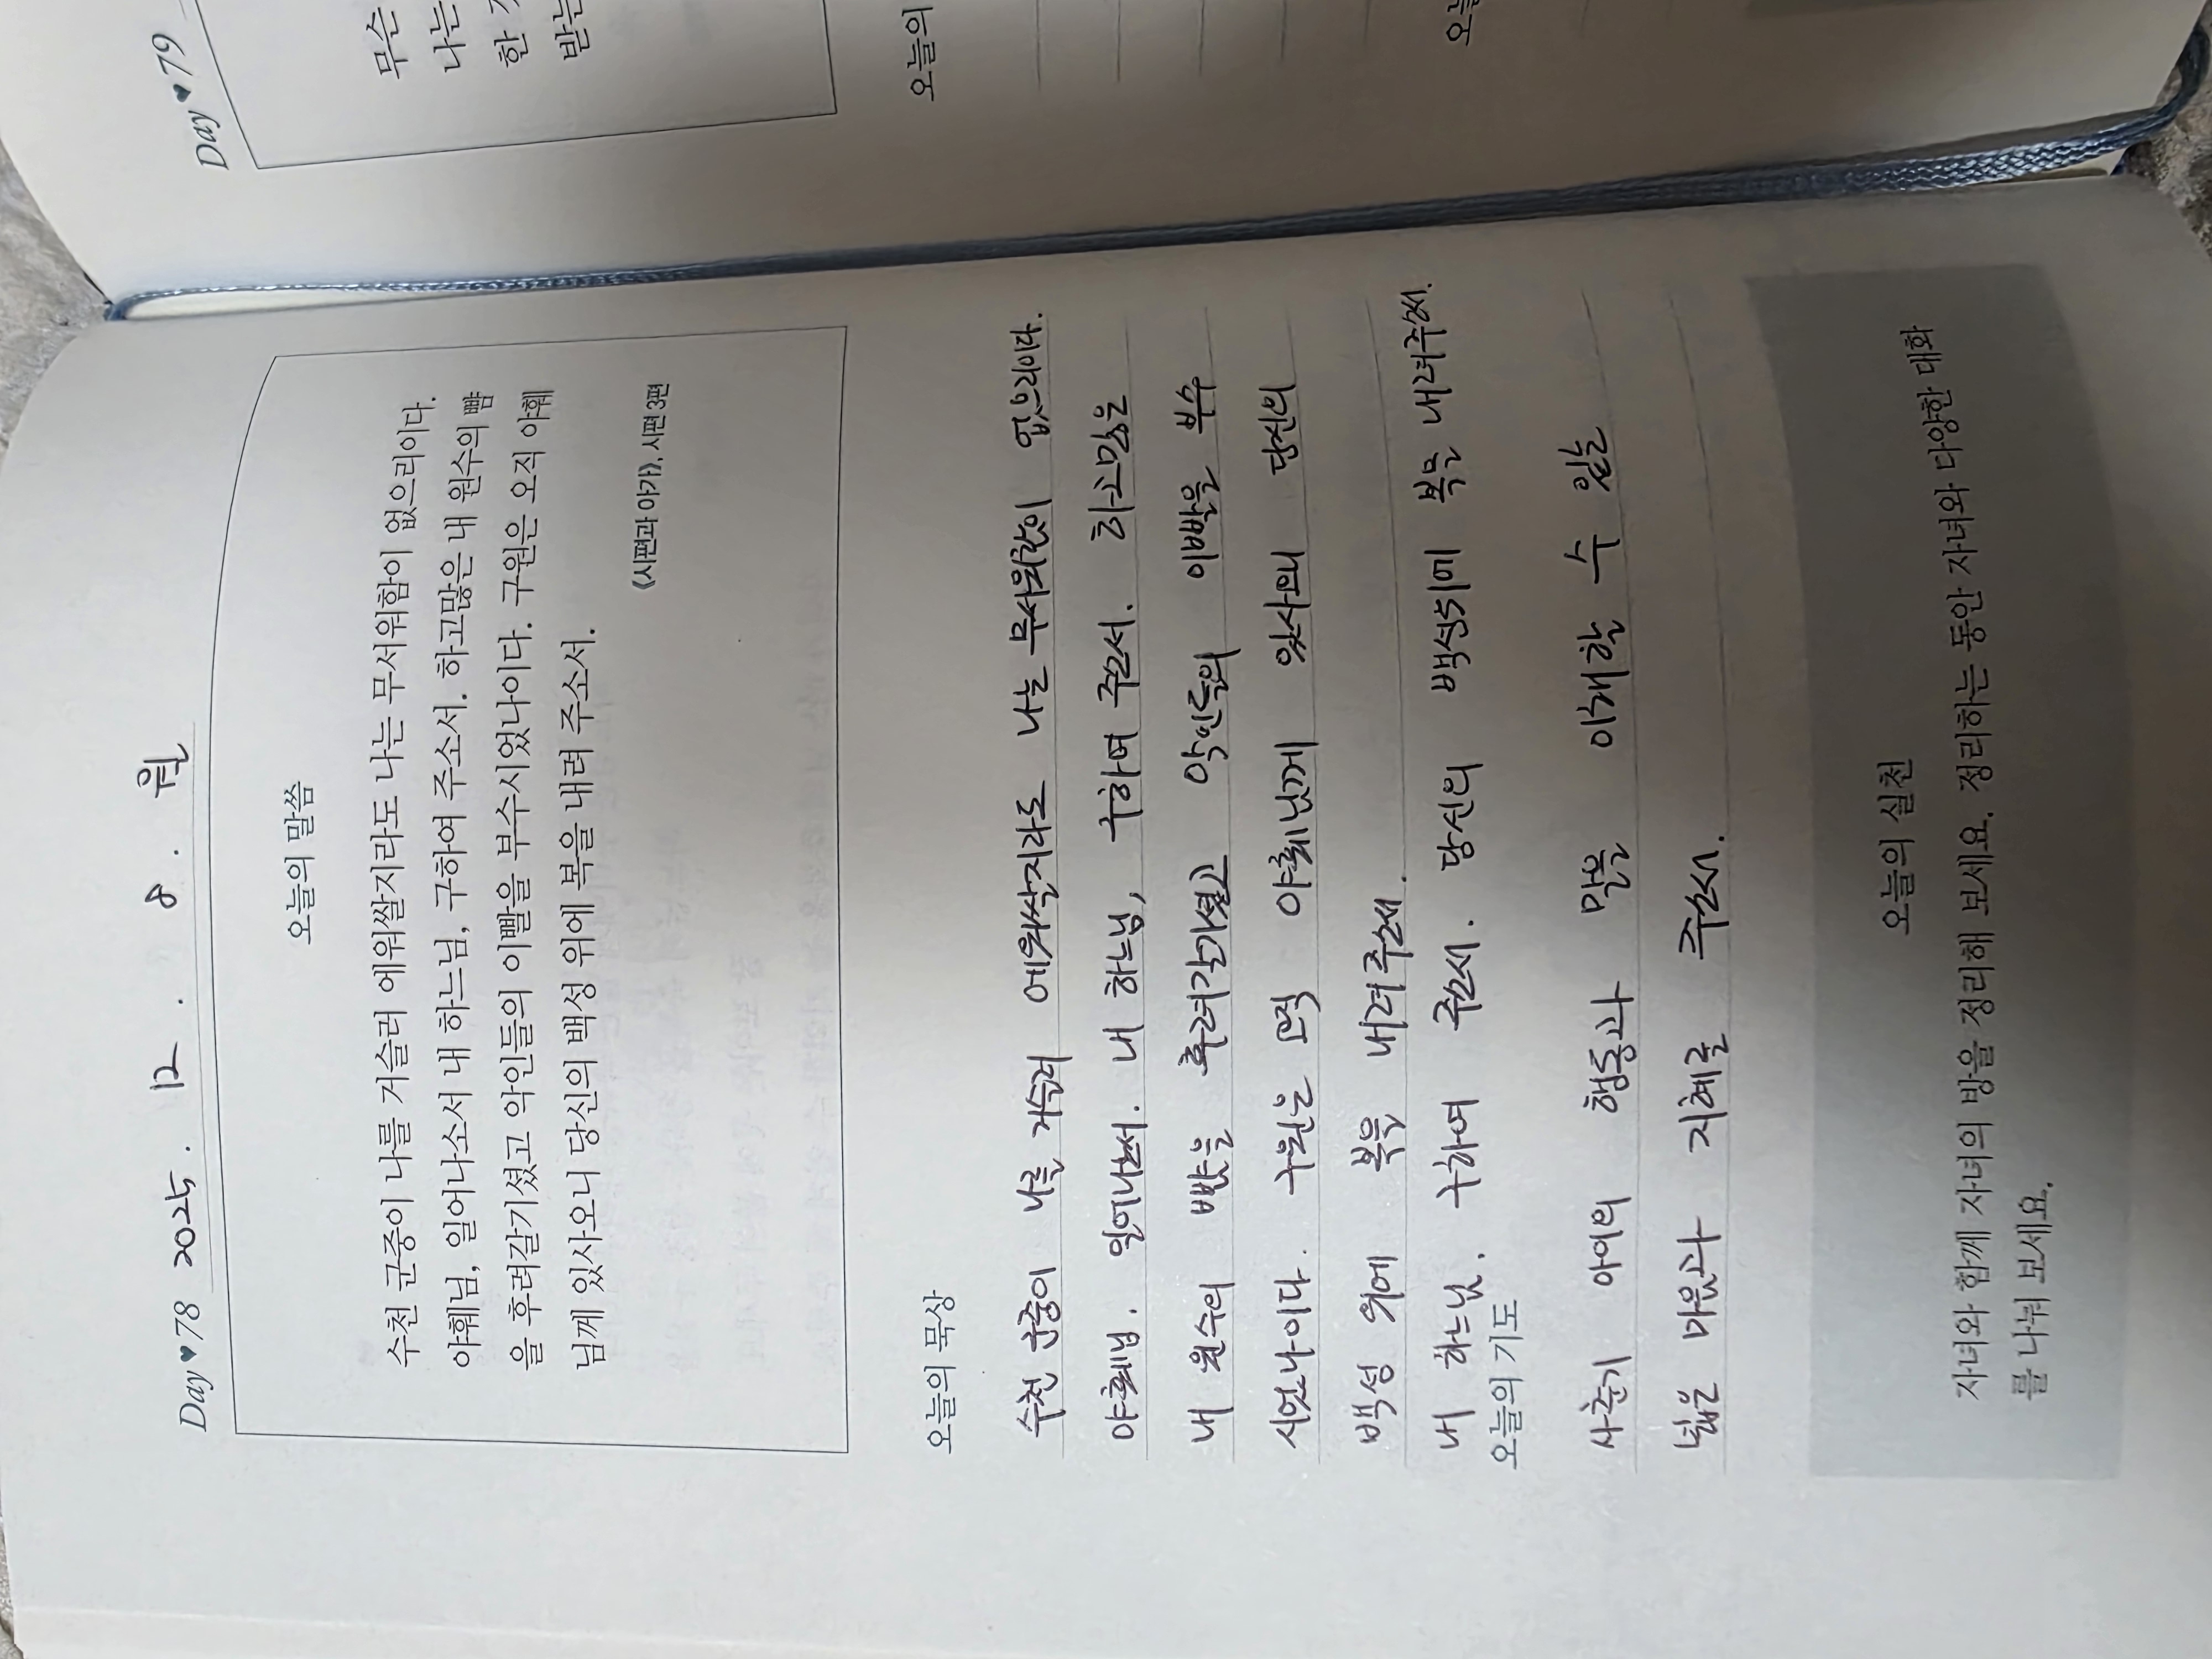 Day♥78 2025. 12. 8. 월
오늘의 말씀
수천 군중이 나를 거슬러 에워쌀지라도 나는 무서워함이 없으리이다.
야훼님, 일어나소서 내 하느님, 구하여 주소서. 하고많은 내 원수의 뺨
을 후려갈기셨고 악인들의 이빨을 부수시었나이다. 구원은 오직 야훼
님께 있사오니 당신의 백성 위에 복을 내려 주소서.
《시편과 아가》, 시편 3편
오늘의 묵상
수천 군중이 나를 거슬러 에워쌀지라도 나는 무서워함이 없으리이다.
야훼님. 일어나소서. 내 하느님, 구하여 주소서. 하고많은
내 원수의 뺨을 후려갈기셨고 악인들의 이빨을 부수
시었나이다. 구원은 오직 야훼님께 있사오니 당신의
백성 위에 복을 내려주소서.
내 하느님. 구하여 주소서. 당신의 백성위에 복을 내려주소서.
오늘의 기도
사춘기 아이의 행동과 말을 이해할 수 있는
넓은 마음과 지혜를 주소서.
오늘의 실천
자녀와 함께 자녀의 방을 정리해 보세요. 정리하는 동안 자녀와 다양한 대화
를 나눠 보세요.
Day♥79
무슨
나는
한
받는
오늘의